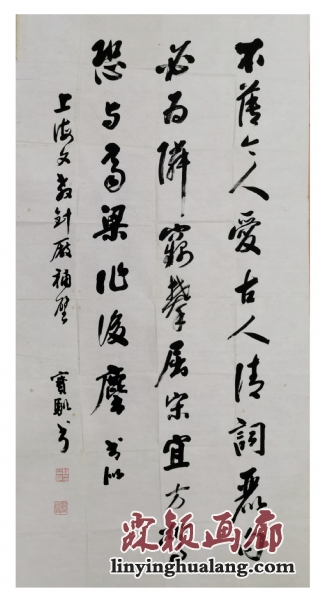 不薄今人愛古人清詞麗句
必为隣竊攀屈宋宜方駕
恐与齊梁作後塵 书似
上海文教針廠補壁
寶 书
琳颖画廊
linyinghualang.com